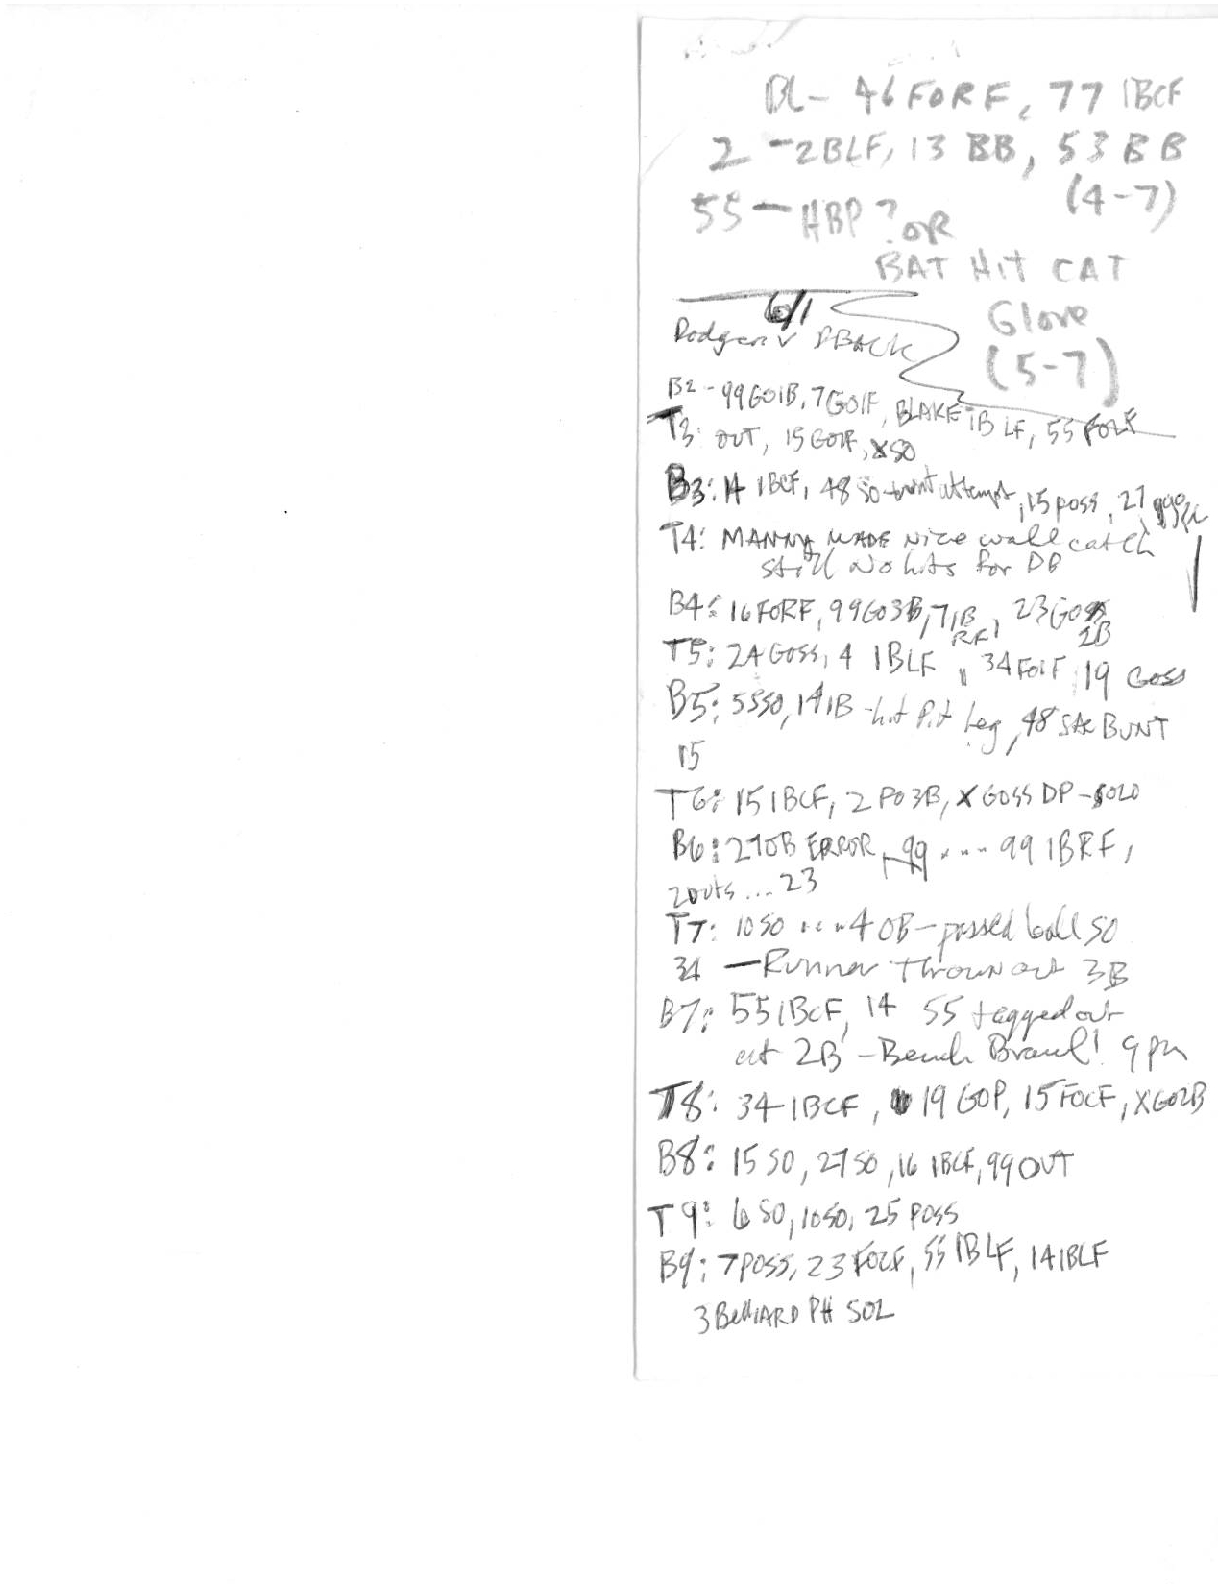 BL - 46 FORF, 77 1BCF
2 - 2BLF, 13 BB, 53 BB
(4-7)
55 - HBP? OR
BAT HIT CAT
Glove
(5-7)
6/1
Dodgers v DBACK
B2 - 99 GO1B, 7 GO1F, BLAKE 1B LF, 55 FOLF
T3: OUT, 15 GO1F, X SO
B3: 14 1BCF, 48 SO - bunt attempt, 15 POSS, 27
T4: MANNY MADE Nice wall catch
still No hits for DB
B4: 16 FORF, 99 GO3B, 7 1B RF, 23 GO 2B
T5: 24 GOSS, 4 1BLF, 34 FOLF, 19 GOSS
B5: 55 SO, 14 1B - hit Pit leg, 48 SAC BUNT
15
T6: 15 1BCF, 2 PO3B, X GOSS DP - SOLO
B6: 27 OB ERROR, 99 .... 99 1BRF,
2 outs ... 23
T7: 10 SO .... 4 OB - passed ball SO
34 - Runner Thrown out 3B
B7: 55 1BCF, 14 55 tagged out
at 2B - Bench Brawl! 9 pm
T8: 34 1BCF, 19 GOP, 15 FOCF, X GO2B
B8: 15 SO, 27 SO, 16 1BCF, 99 OUT
T9: 6 SO, 10 SO, 25 POSS
B9: 7 POSS, 23 FOLF, 55 1BLF, 14 1BLF
3 BelliARD PH SOL